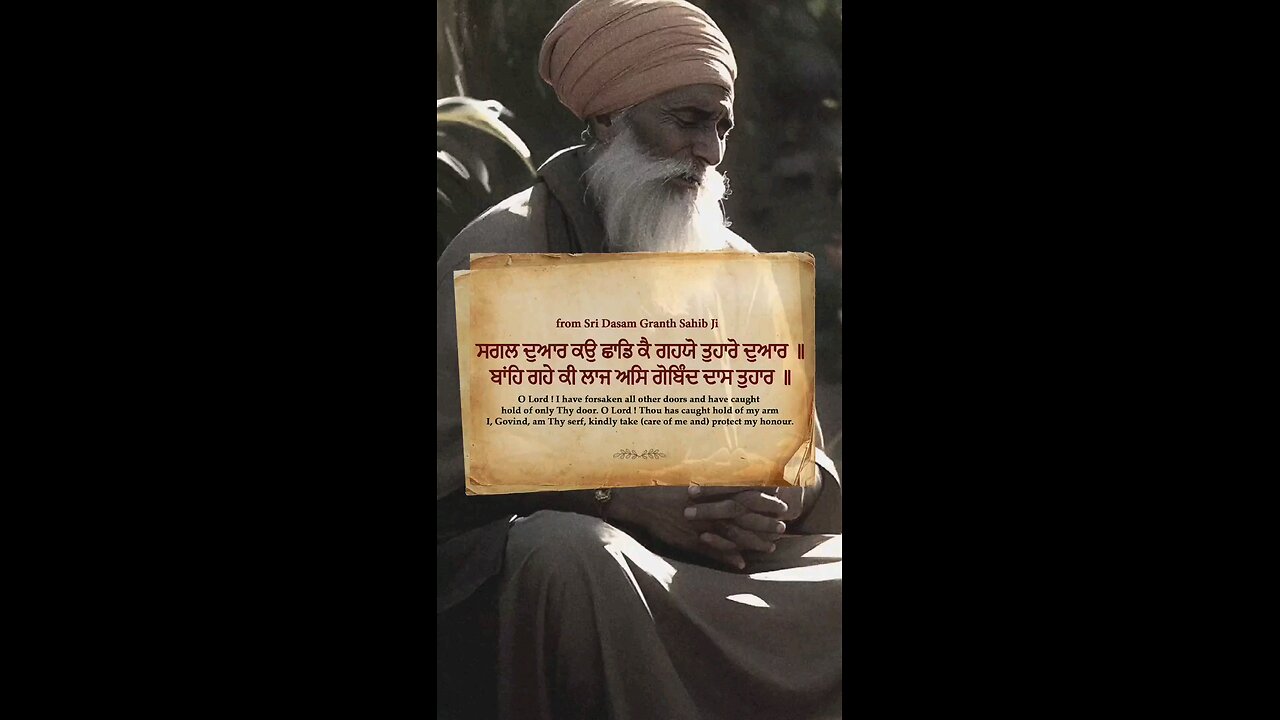 from Sri Dasam Granth Sahib Ji
ਸਗਲ ਦੁਆਰ ਕਉ ਛਾਡਿ ਕੈ ਗਹਯੋ ਤੁਹਾਰੋ ਦੁਆਰ ॥
ਬਾਂਹਿ ਗਹੇ ਕੀ ਲਾਜ ਅਸਿ ਗੋਬਿੰਦ ਦਾਸ ਤੁਹਾਰ ॥
O Lord ! I have forsaken all other doors and have caught
hold of only Thy door. O Lord ! Thou has caught hold of my arm
I, Govind, am Thy serf, kindly take (care of me and) protect my honour.